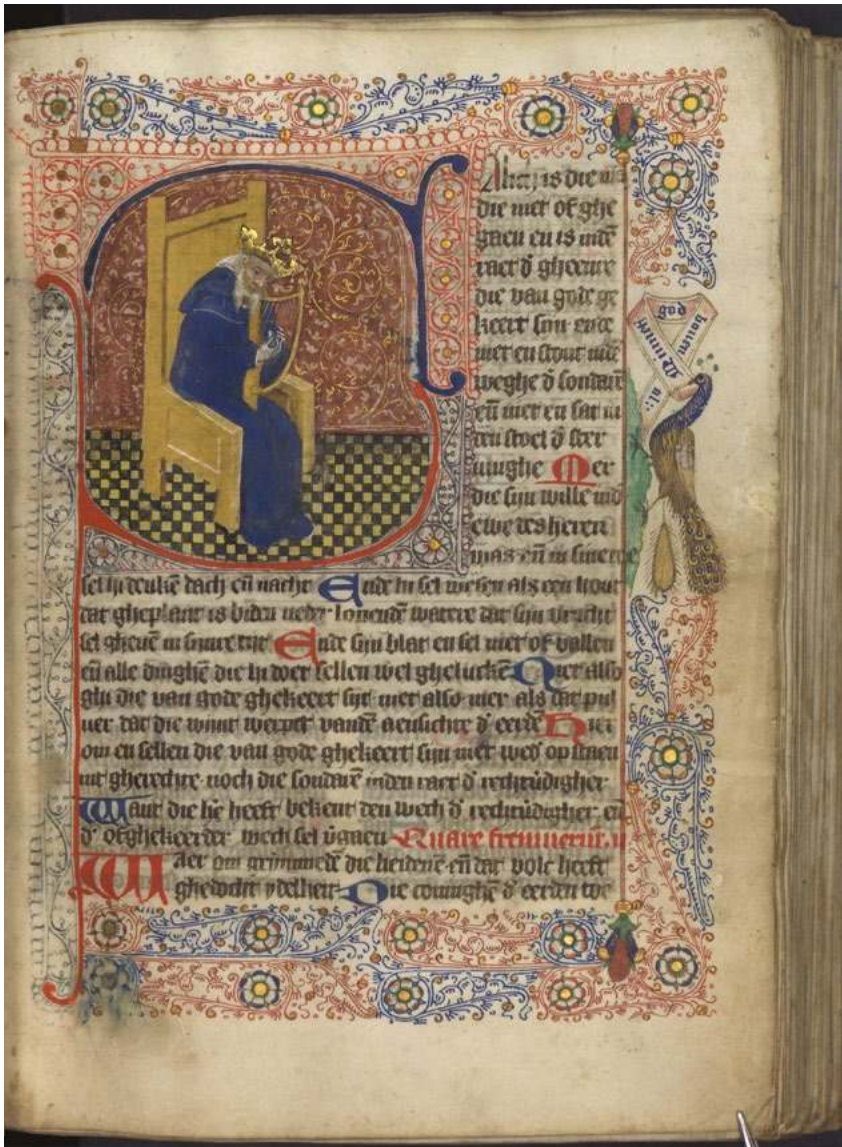 Alich is die mā
die niet of ghe
gaen en is indē
raet d̕ gheenre
die van gode ge
keert sijn ende
niet en stout indē
weghe d̕ sondarē
eñ niet en sat in
den stoel d̕ scer
nighe Mer
die sijn wille indē
ewe des heren
was eñ in sine we
sel hi denkē dach eñ nacht Ende hi sel wesen als een hout
dat gheplant is biden neder lopendē watere dat sijn vrucht
sel ghevē in sinre tijt Ende sijn blat en sel niet of vallen
eñ alle dinghē die hi doet sellen wel gheluckē Niet also
ghi die van gode ghekeert sijt niet also mer als dat pul
uer dat die wint werpet vandē aensichte d̕ eerdē Hier
om en sellen die van gode ghekeert sijn niet wed̕ op staen
int gherechte noch die sondarē inden raet d̕ rechtūdigher
Want die hē heeft bekent den wech d̕ rechtūdigher eñ
d̕ ofghekeerder wech sel v̄gaen Quare fremuerūt
Waer om grimmede die heidene eñ dat volc heeft
ghedocht ydelheit Die coninghē d̕ eerden toe
Minnet
god
boven
al